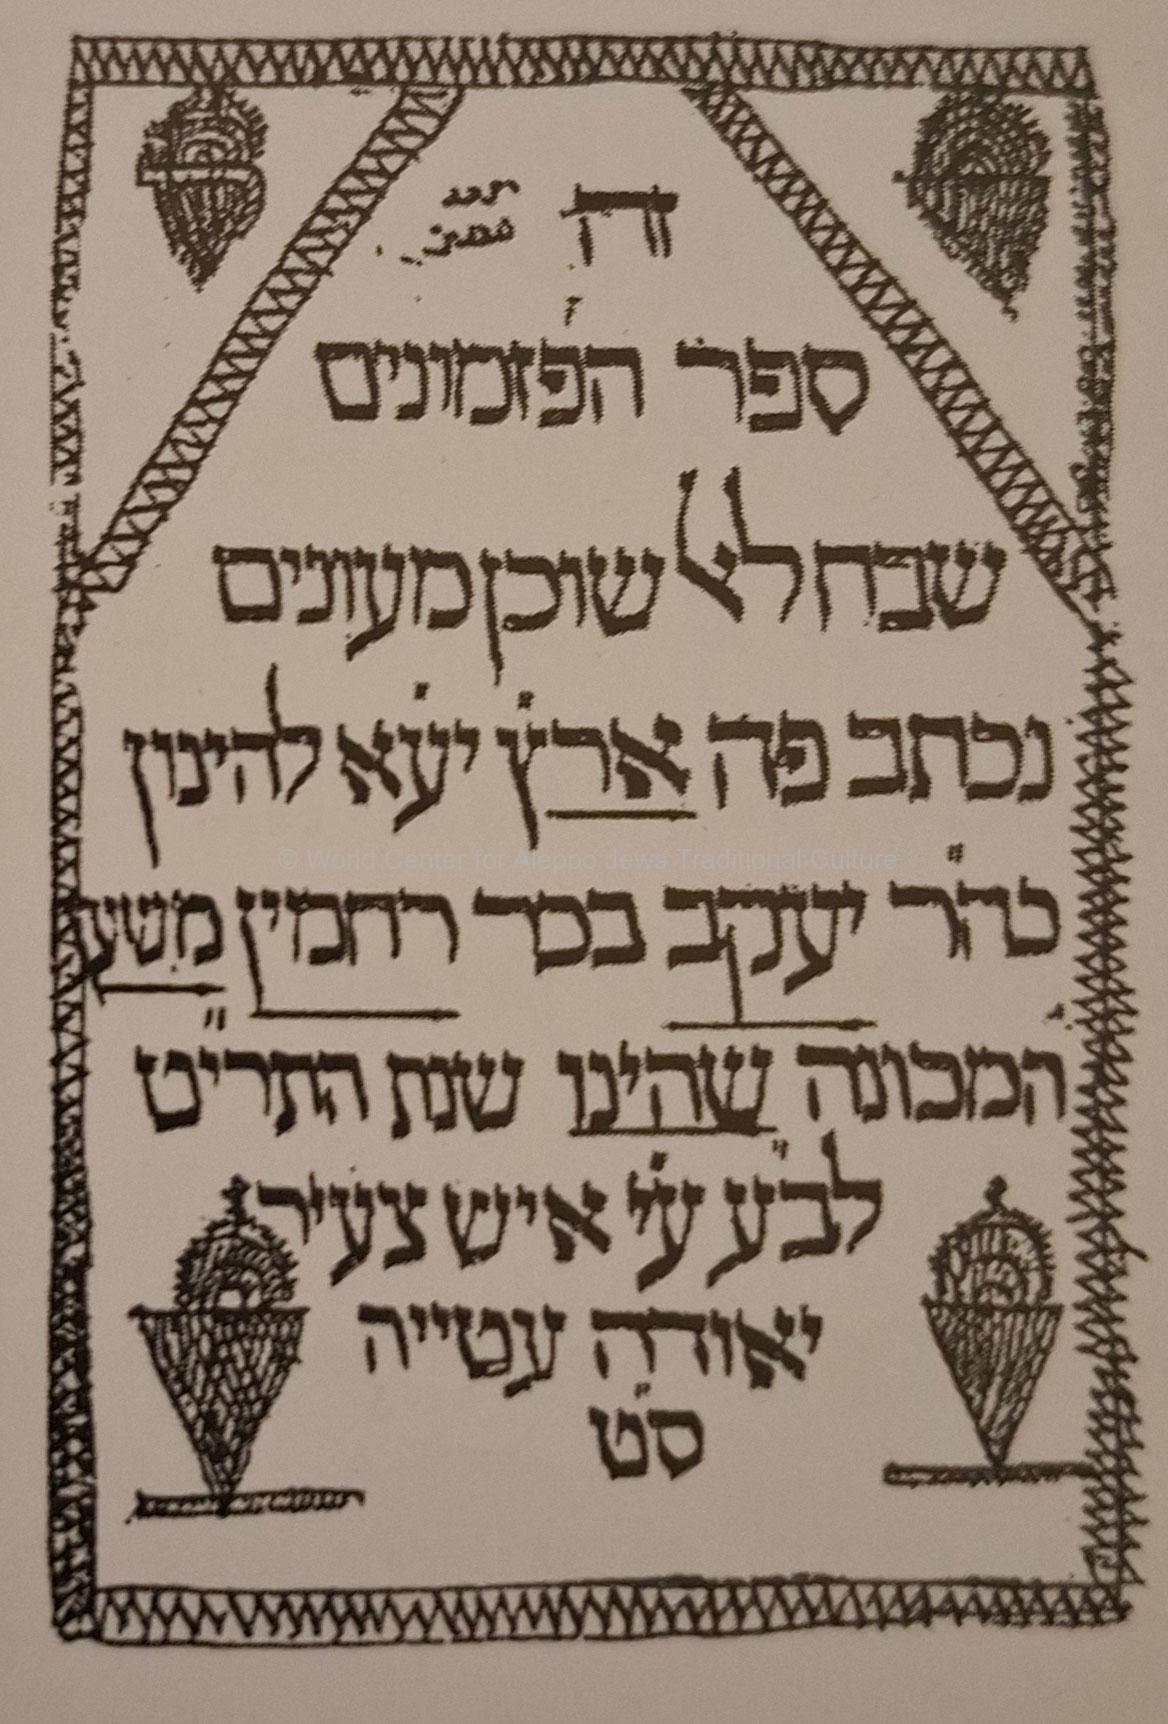 זה
ספר הפזמונים
שבח לא שוכן מעונים
נכתב פה ארץ יע״א להינוק
כה״ר יעקב בכר רחמין משען
המכונה שהינו שנת התרי״ט
לב״ע ע״י איש צעיר
יאודה עטייה
ס״ט
© World Center for Aleppo Jews Traditional Culture